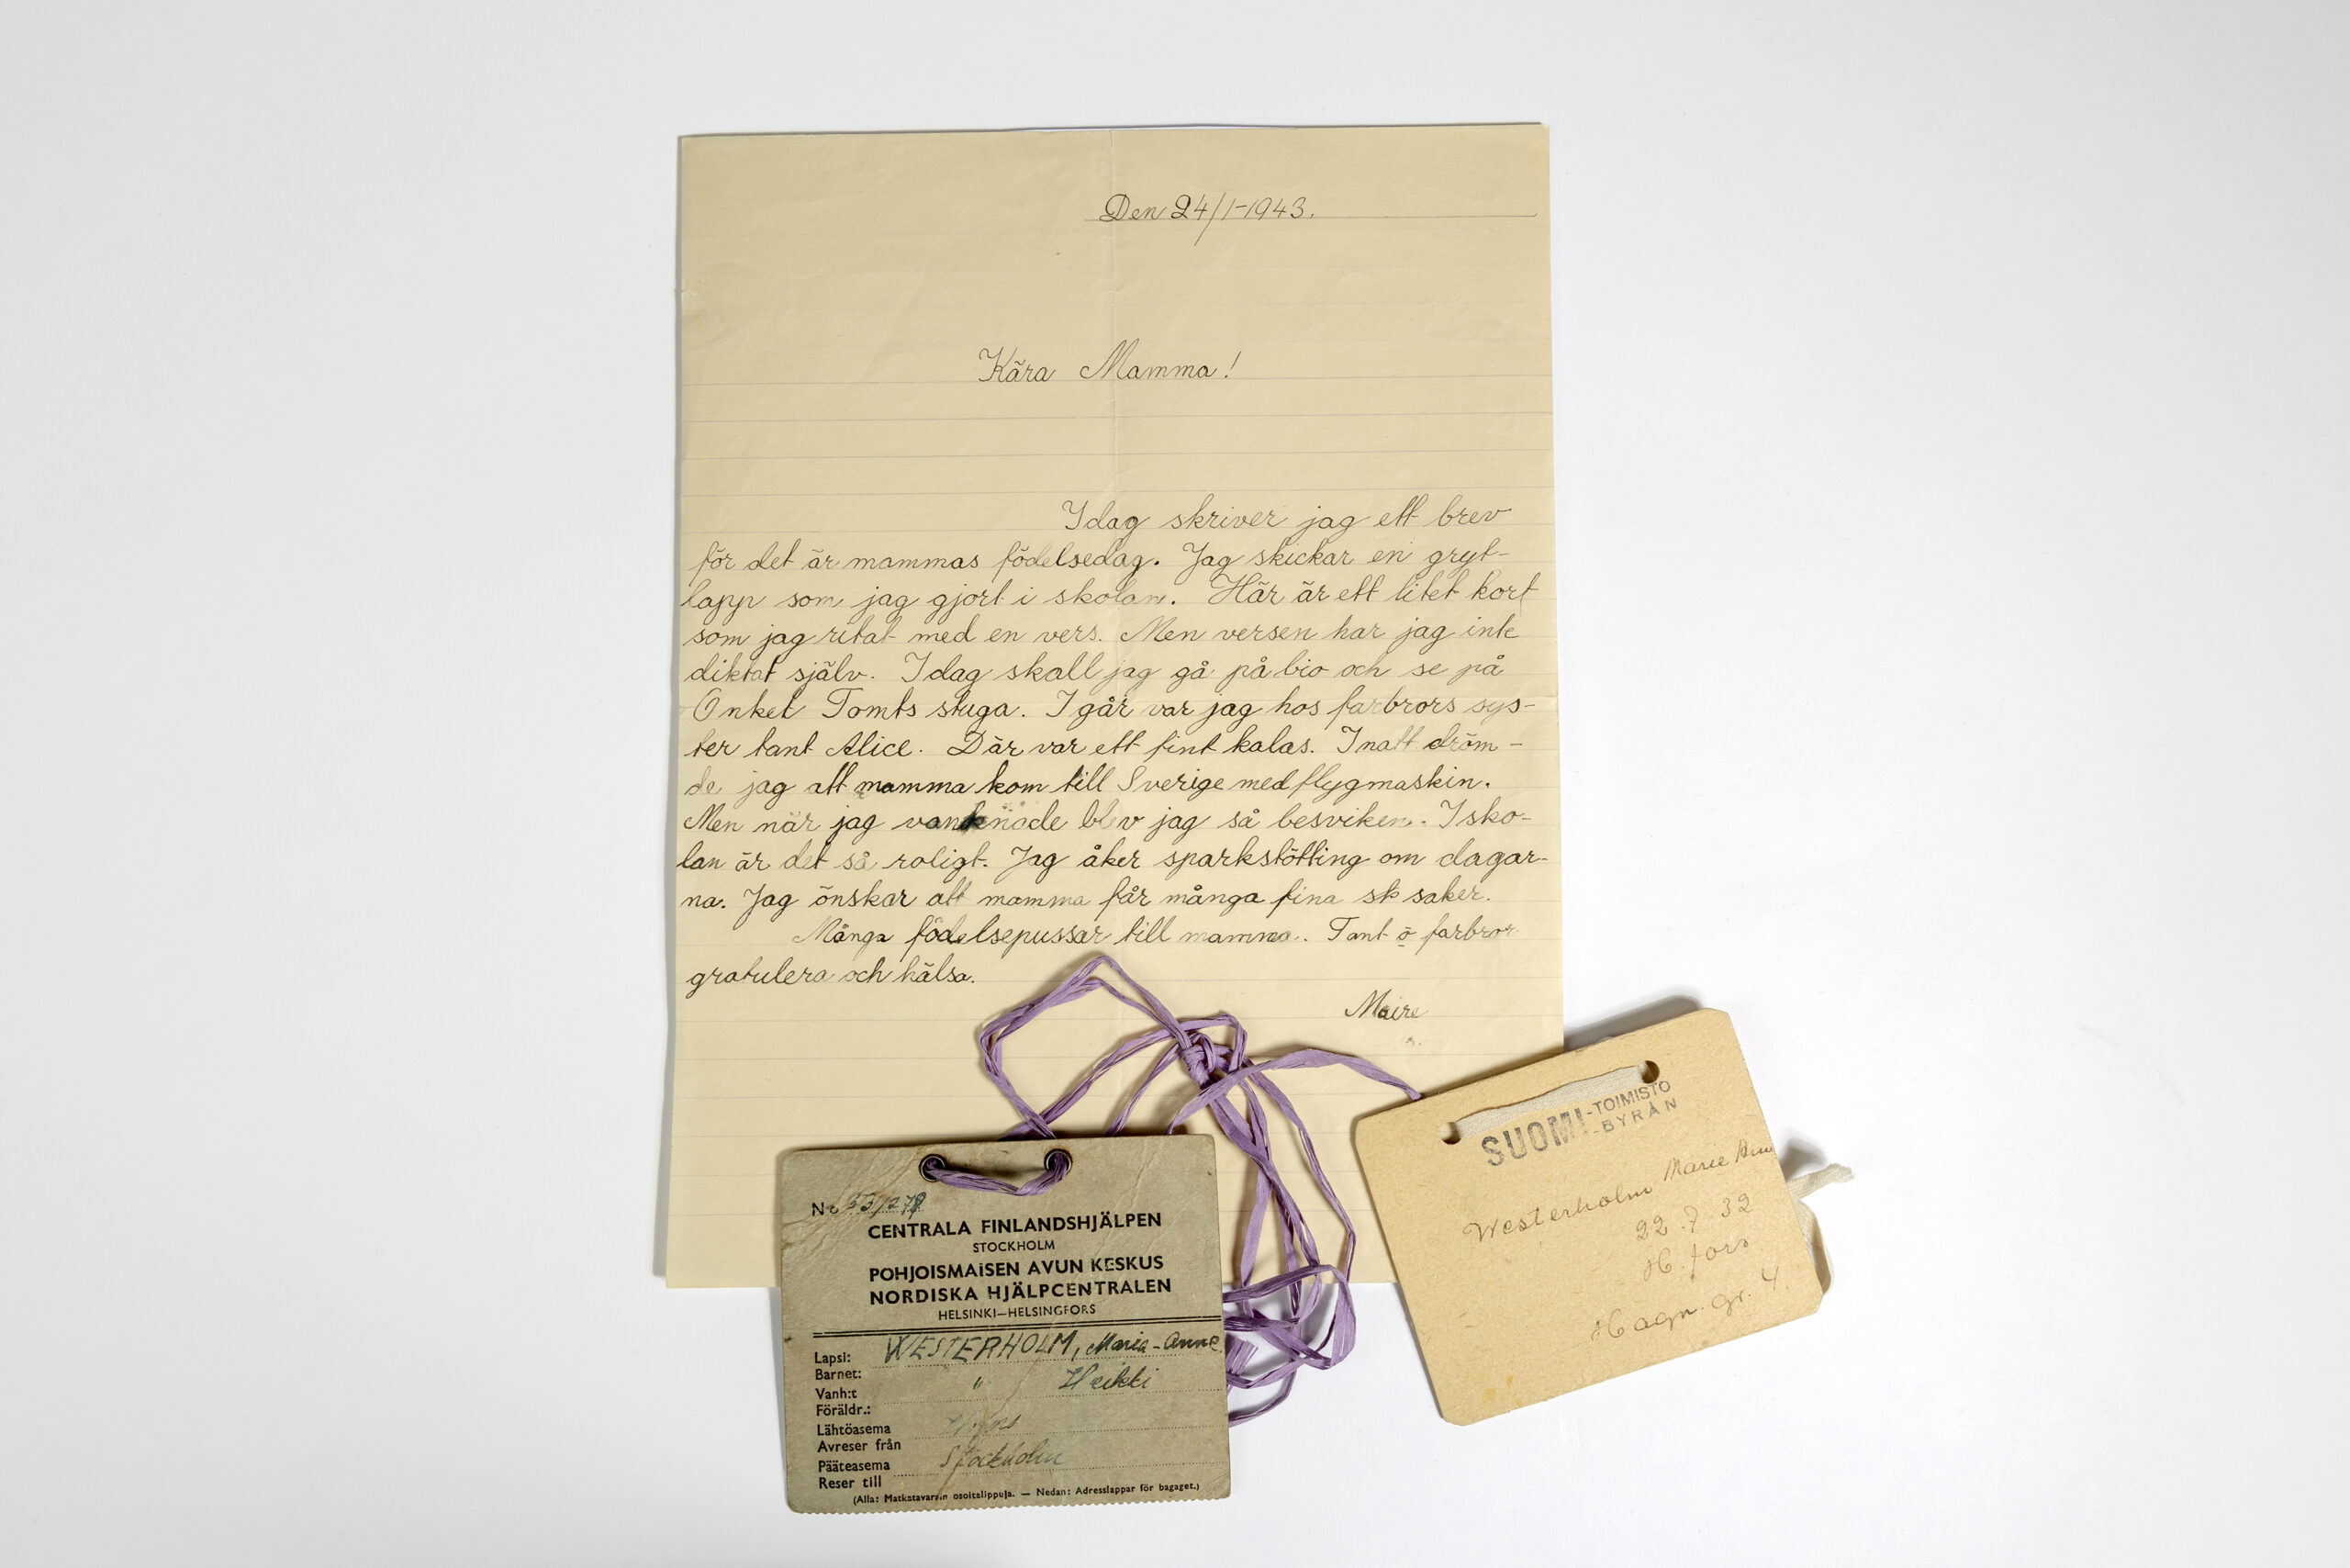 Den 24/1-1943.
Kära Mamma!
Idag skriver jag ett brev
för det är mammas födelsedag. Jag skickar en gryt-
lapp som jag gjort i skolan. Här är ett litet kort
som jag ritat med en vers. Men versen har jag inte
diktat själv. Idag skall jag gå på bio och se på
Onkel Toms stuga. I går var jag hos farbrors sys-
ter tant Alice. Där var ett fint kalas. Inatt dröm-
de jag att mamma kom till Sverige med flygmaskin.
Men när jag vaknade blev jag så besviken. I sko-
lan är det så roligt. Jag åker sparkstötting om dagar-
na. Jag önskar att mamma får många fina sk saker.
Många födelsepussar till mamma. Tant o farbror
gratulera och hälsa.
Maire
Nr
CENTRALA FINLANDSHJÄLPEN
STOCKHOLM
POHJOISMAISEN AVUN KESKUS
NORDISKA HJÄLPCENTRALEN
HELSINKI—HELSINGFORS
Lapsi: WESTERHOLM, Maria-Anne
Barnet:
Vanh:t " Heikki
Föräldr.:
Lähtöasema
Avreser från
Pääteasema Stockholm
Reser till
(Alla: Matkatavarain osoitelippuja. — Nedan: Adresslappar för bagaget.)
SUOMI-TOIMISTO
-BYRÅN
Westerholm Marie Ann
22.7 32
H.fors
Hagn. gr. 4